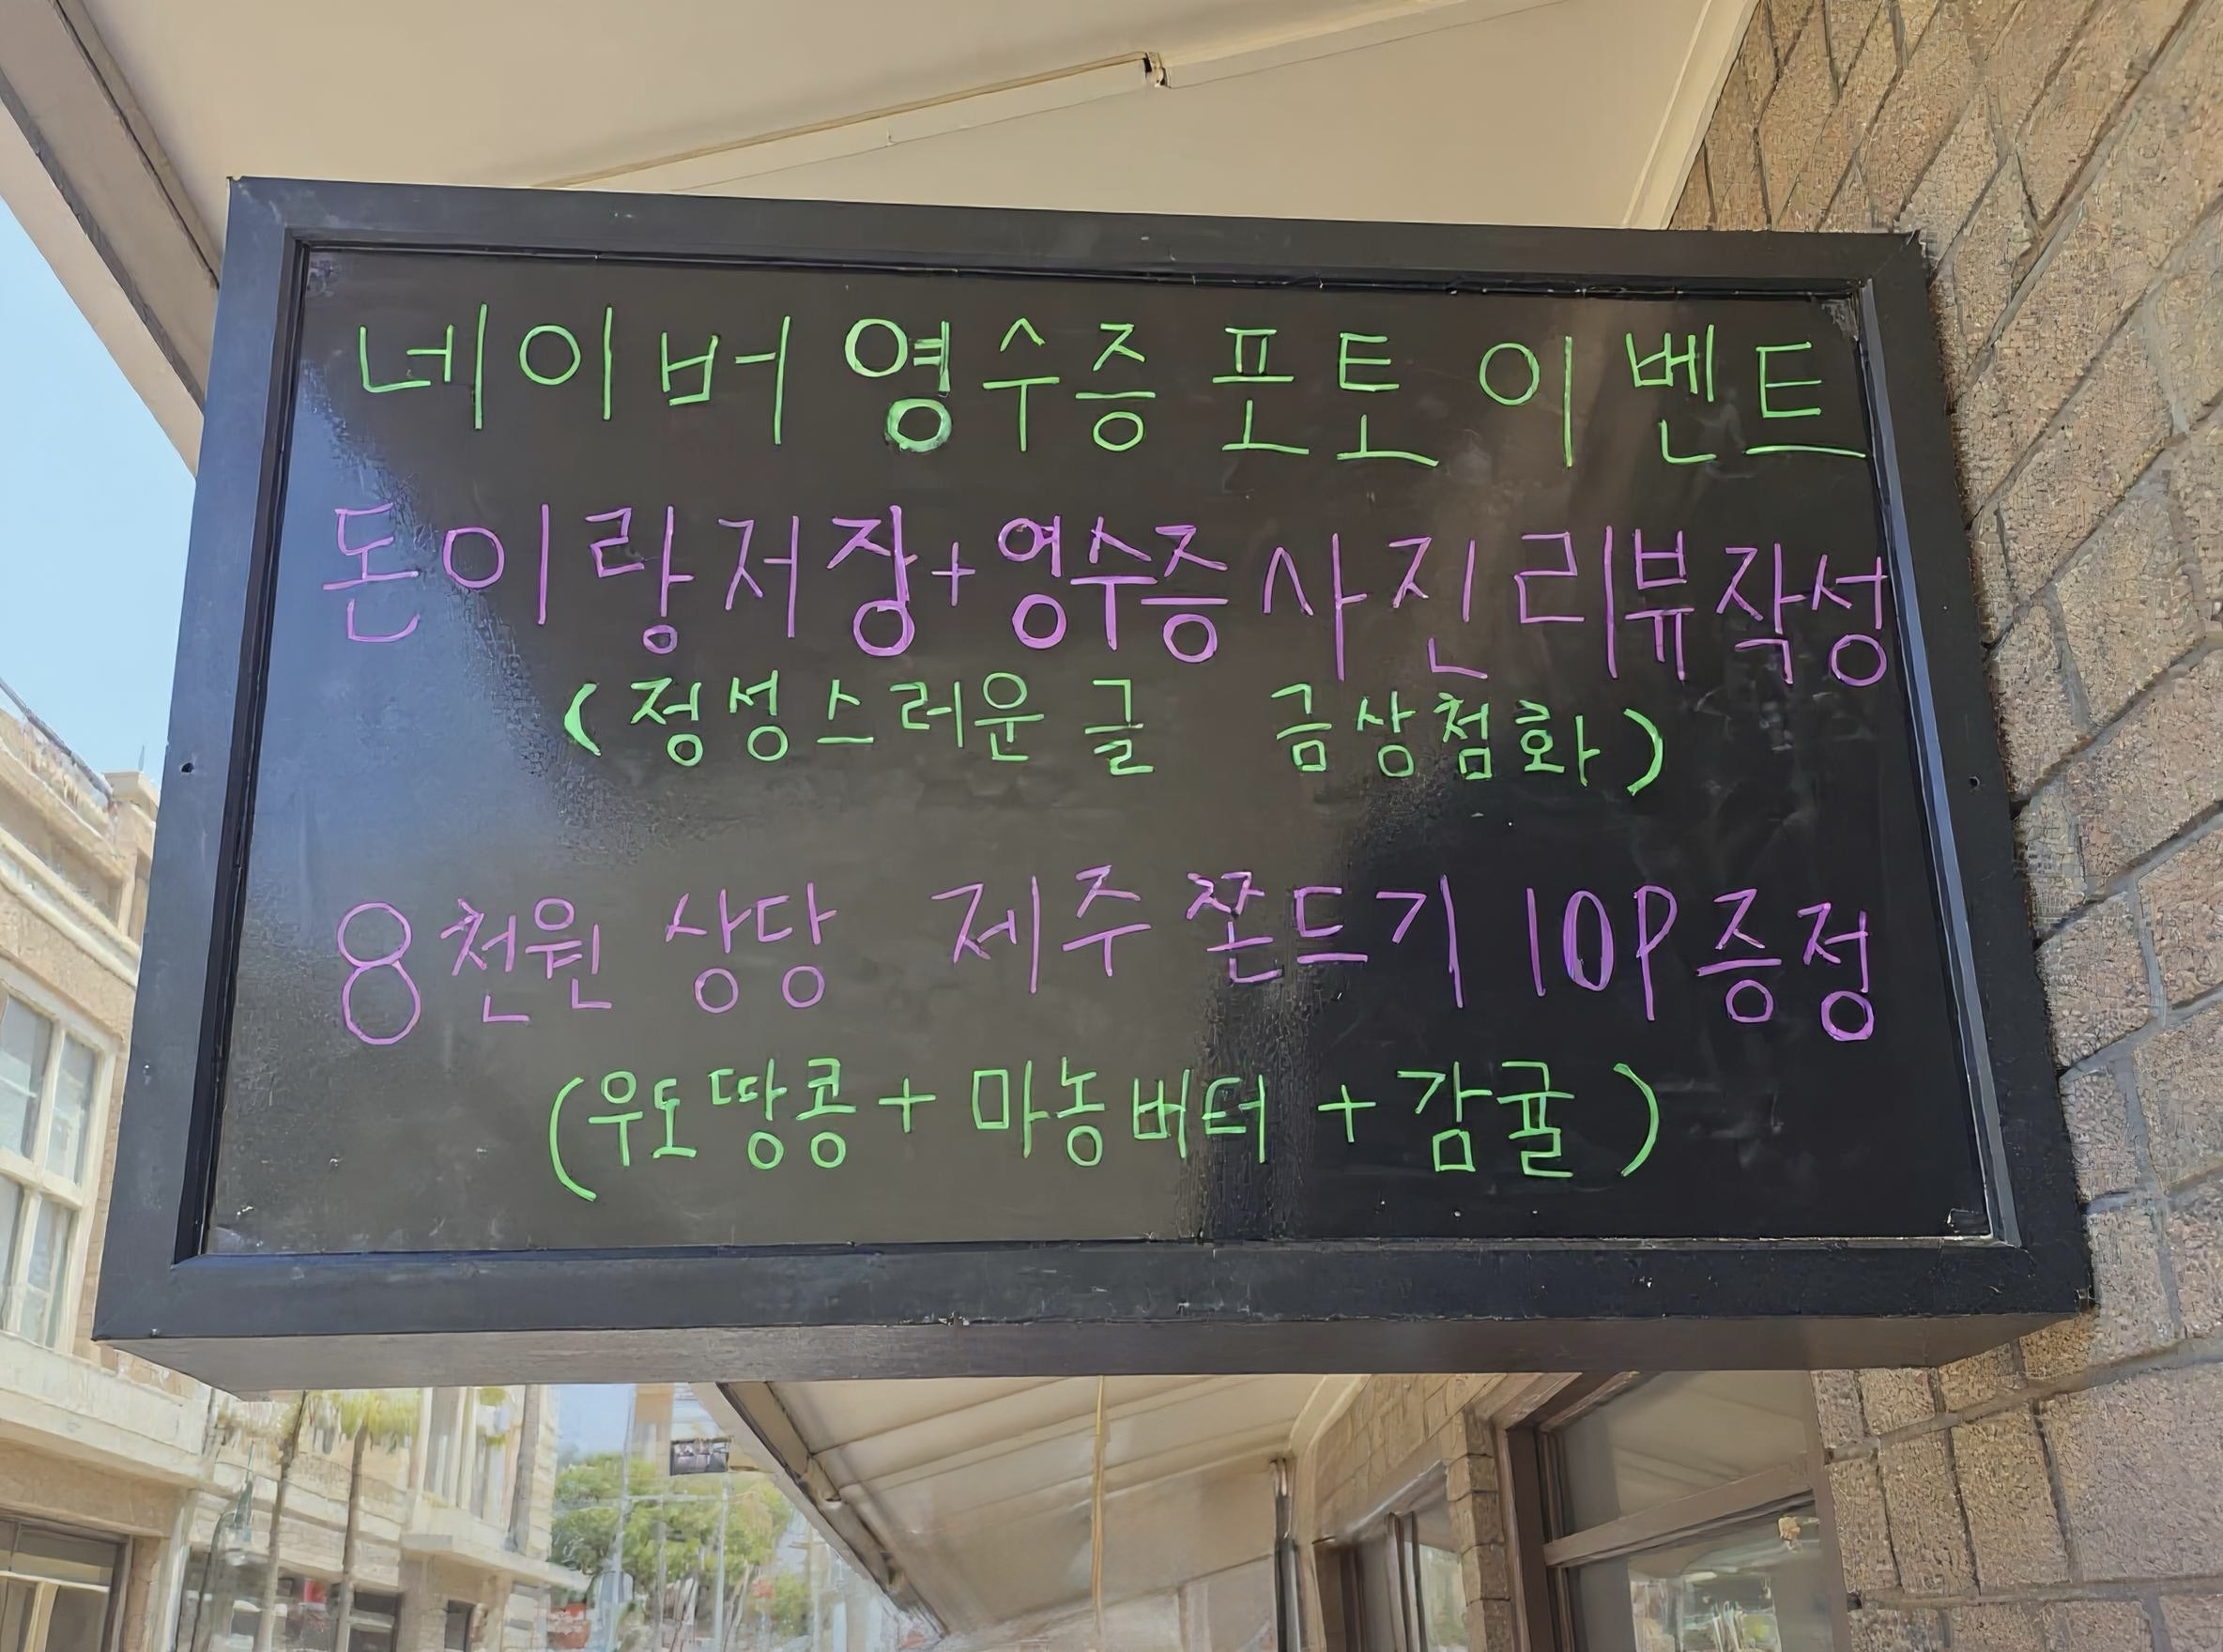 네이버 영수증 포토 이벤트
돈이랑저장+영수증사진리뷰작성
(정성스러운 글 금상첨화)
8천원 상당 제주 쫀드기 10P증정
(우도땅콩+마농버터+감귤)